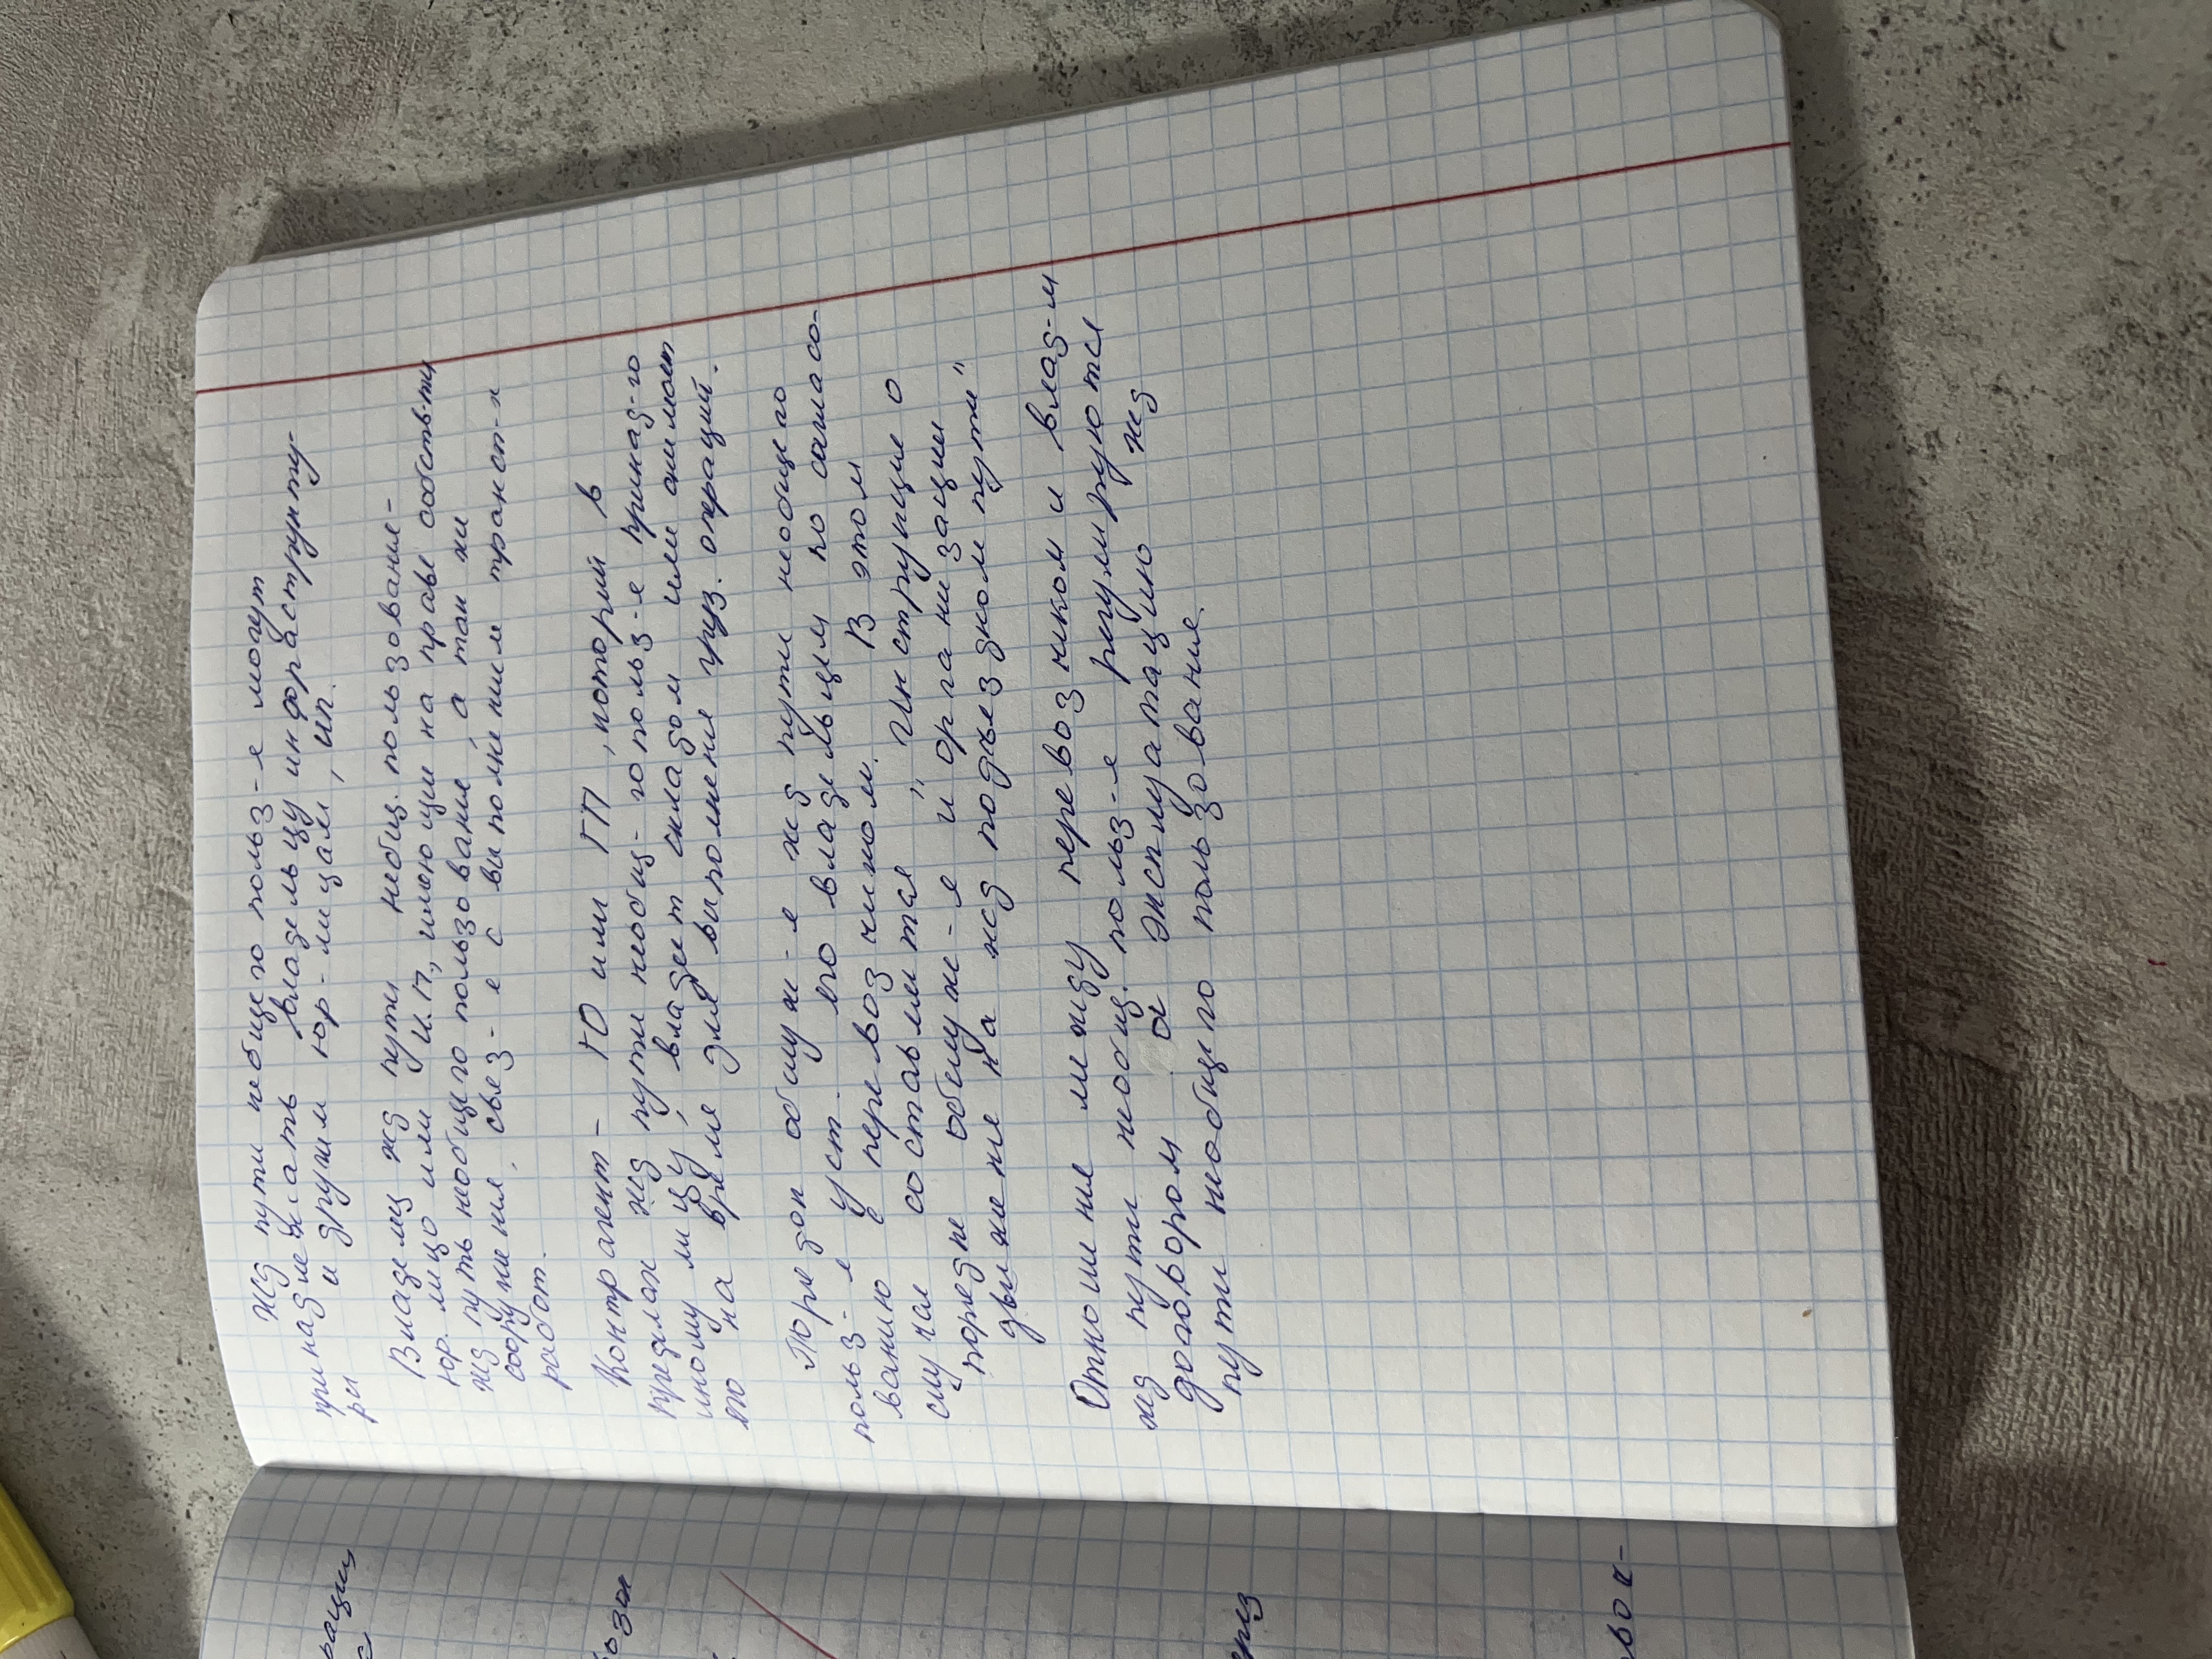 жд пути небщего польз-е могут
принадлежать владельцу инфраструкту-
ры и другим юр-лицам, ИП.
Владелец жд пути небщ. пользование-
юр. лицо или И.П, имеющие на праве собств-ти
жд путь необщего пользование, а так же
сооружения, связ-е с выполнением транспт-х
работ.
Контрагент - ГО или ГП, который в
пределах жд пути необщ-го польз-е принад-го
иному лицу, владеет складом или анимает
его на время для выполнения груз. операций.
Порядок обслуж-е жд пути необщего
польз-е уст. его владельцем по согласо-
ванию у перевозчиком. В этом
случае составляется „Инструкцие о
порядке обслуже-е и организации
движение на жд подъездном пути"
Отношение между перевозчиком и влад-м
жд пути необщ. польз-е регулируются
договором а эксплуатацию жд
пути необщего пользование.
рации
воза
вок-